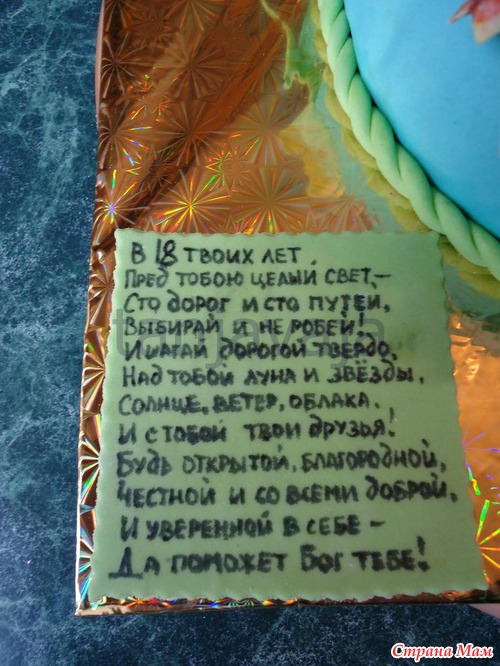 В 18 твоих лет.
Пред тобою целый свет, –
Сто дорог и сто путей,
Выбирай и не робей!
И шагай дорогой твердо,
Над тобой луна и звёзды,
Солнце, ветер, облака.
И с тобой твои друзья!
Будь открытой, благородной,
Честной и со всеми доброй,
И уверенной в себе –
Да поможет Бог тебе!
Страна Мам